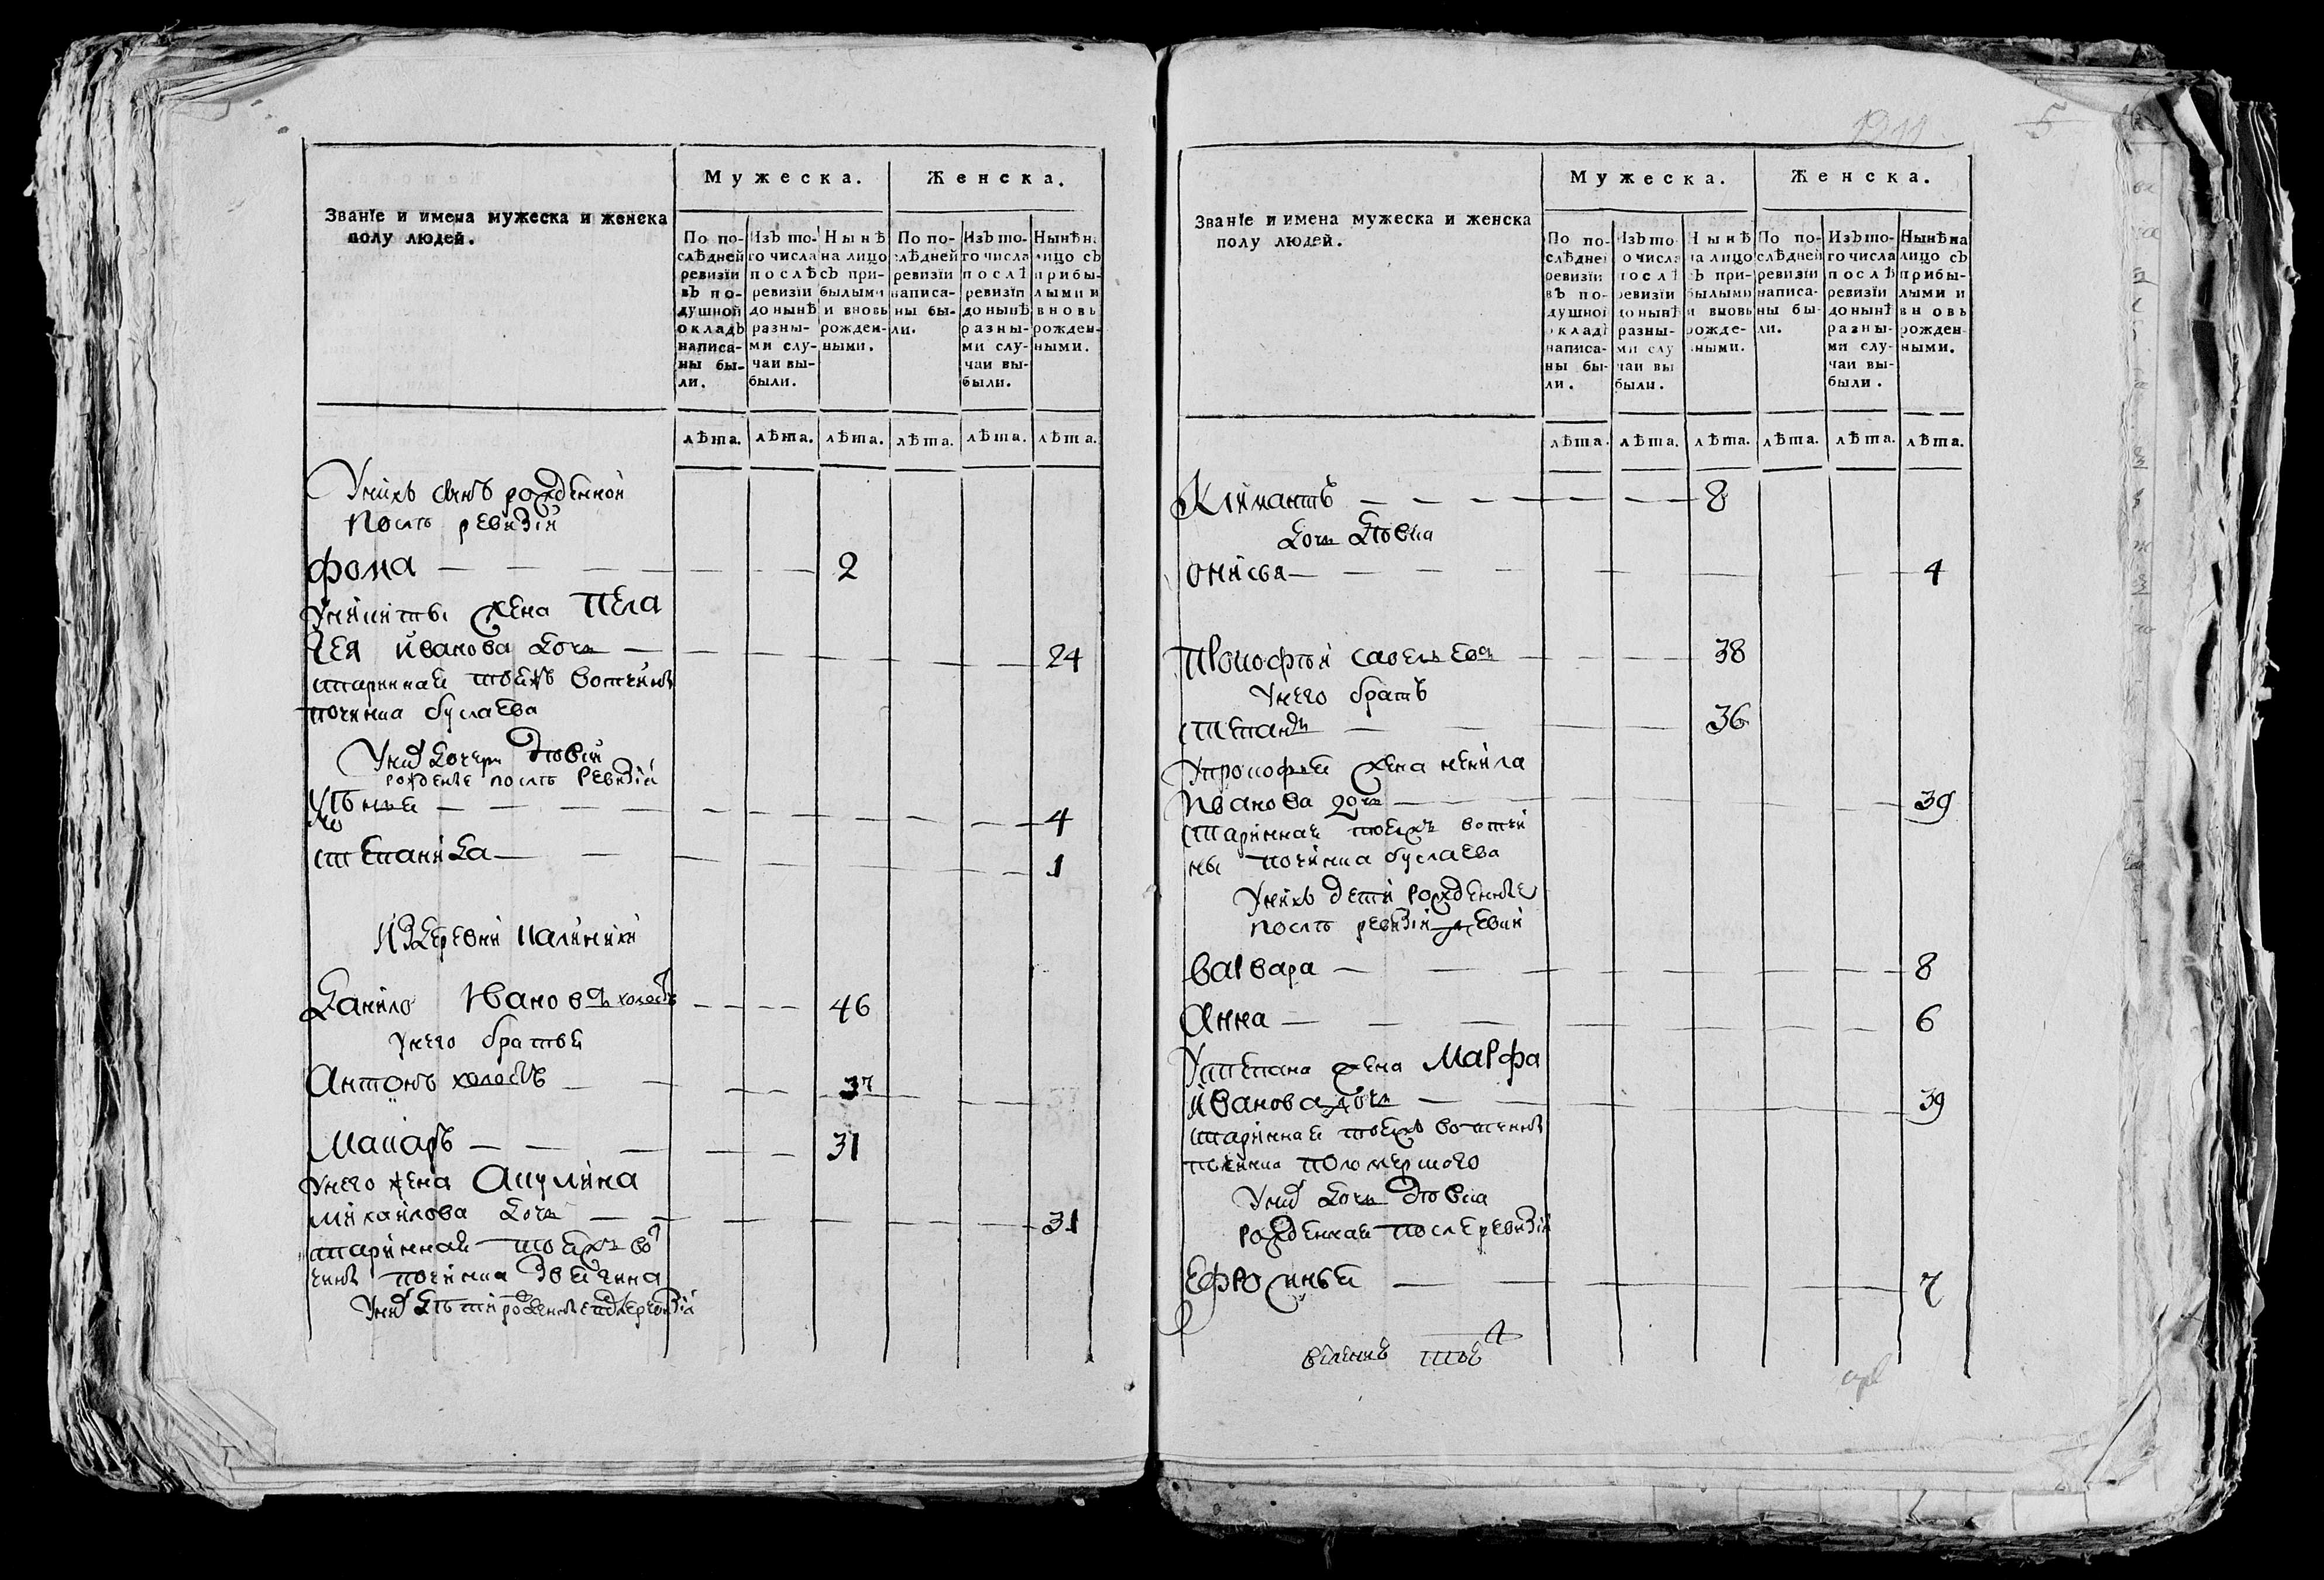 Званїе и имена мужеска и женска
полу людей.
Мужеска.
Женска.
По по-
слѣдней
ревизїи
въ по-
душной
окладъ
написа-
ны бы-
ли.
Изъ то-
го числа
послѣ
ревизїи
до нынѣ
разны-
ми слу-
чаи вы-
были.
Нынѣ
на лицо
съ при-
былыми
и вновь
рожден-
ными.
По по-
слѣдней
ревизїи
написа-
ны бы-
ли.
Изъ то-
го числа
послѣ
ревизїи
до нынѣ
разны-
ми слу-
чаи вы-
были.
Нынѣ на
лицо съ
прибы-
лыми и
вновь
рожден-
ными.
лѣта. лѣта. лѣта. лѣта. лѣта. лѣта.
Унихъ сынъ рожденной
послѣ ревизiи
фома 2
Уникиты жена Пела
гея Иванова дочь 24
старинная тоеижъ вотчины
починка буслаева
Униχ дочери девки
рожденые послѣ ревизiи
Ульяна 4
степанида 1
Из деревни калиники
Данило Иванов холостъ 46
Унего братья
Антонъ холостъ 37
Макаръ 31
Унего жена Акулина
михаилова дочь 31
старинная тоеижъ вот
чины починка
Униχ дѣти рожденные после ревизiи
Званїе и имена мужеска и женска
полу людей.
Мужеска.
Женска.
По по-
слѣдней
ревизїи
въ по-
душной
окладъ
написа-
ны бы-
ли.
Изъ то-
го числа
послѣ
ревизїи
до нынѣ
разны-
ми слу-
чаи вы-
были.
Нынѣ
на лицо
съ при-
былыми
и вновь
рожде-
нными.
По по-
слѣдней
ревизїи
написа-
ны бы-
ли.
Изъ то-
го числа
послѣ
ревизїи
до нынѣ
разны-
ми слу-
чаи вы-
были.
Нынѣ на
лицо съ
прибы-
лыми и
вновь
рожден-
ными.
лѣта. лѣта. лѣта. лѣта. лѣта. лѣта.
Климантъ 8
дочь девка
онисья 4
Прокофей савельевъ 38
Унего братъ
степанъ 36
Упрокофья жена ненила
Иванова дочь 39
старинная тоежъ вотчи
ны починка буслаева
Унихъ дети рожденные
послѣ ревизiи девки
варвара 8
Анна 6
Устепана жена Марфа
Иванова дочь 39
старинная тоежъ вотчины
починка
Униχ дочь девка
рожденная после ревизiи
Ефросинья 7